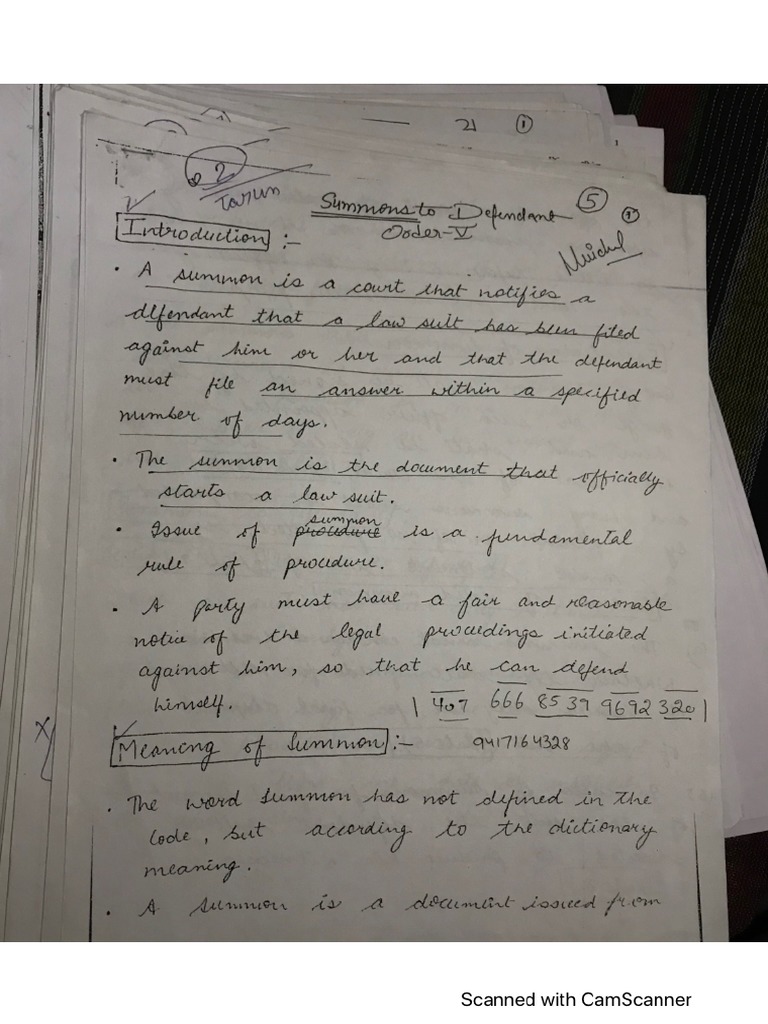 21 1
2
Tarun
Summons to Defendant
5
1
Order-V
Introduction :-
• A summon is a court that notifies a
defendant that a law suit has been filed
against him or her and that the defendant
must file an answer within a specified
number of days.
• The summon is the document that officially
starts a law suit.
summon
• Issue of procedure is a fundamental
rule of procedure.
• A party must have a fair and reasonable
notice of the legal proceedings initiated
against him, so that he can defend
himself. | 407 666 8539 9692 320 |
Meaning of Summon :- 9417164328
• The word Summon has not defined in the
Code, but according to the dictionary
meaning.
• A summon is a document issued from
Scanned with CamScanner